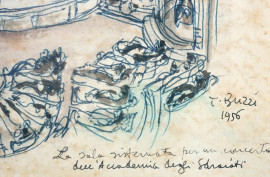 T. Buzzi
1956
La sala sistemata per un concerto
dell'Accademia degli Sfaciati